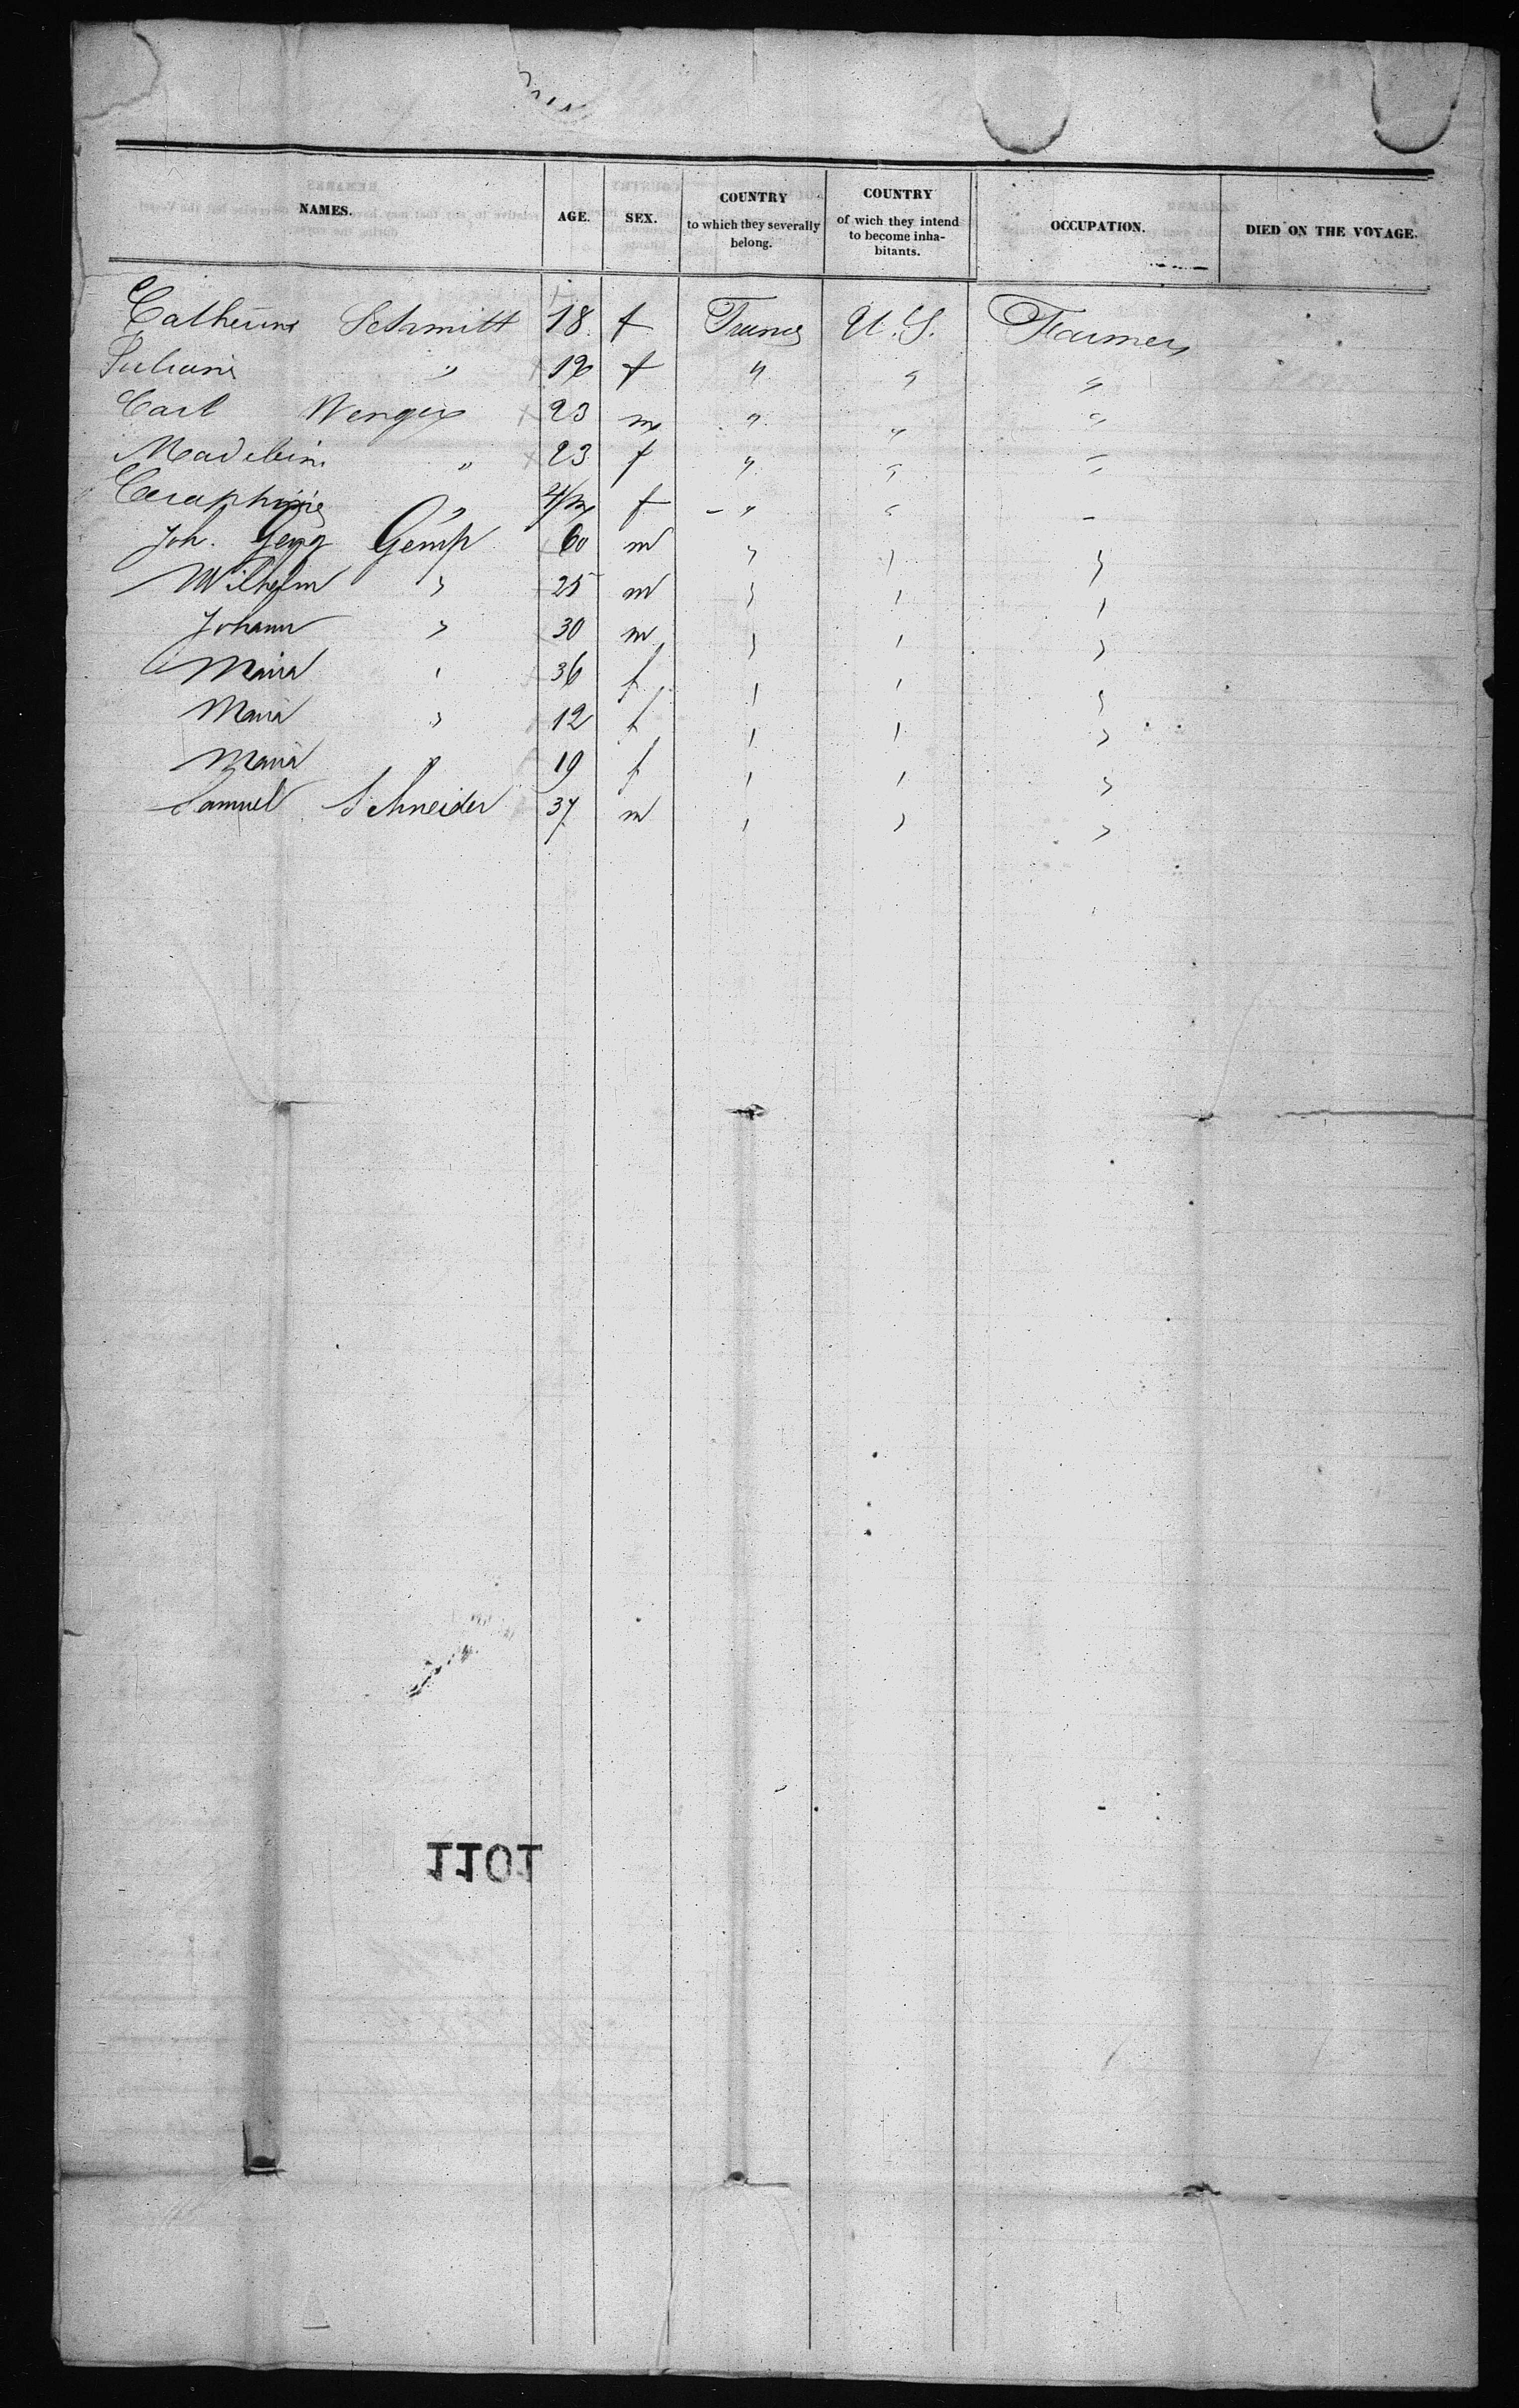 NAMES. AGE. SEX. COUNTRY to which they severally belong. COUNTRY of wich they intend to become inhabitants. OCCUPATION. DIED ON THE VOYAGE.
Catherine Schmitt 18 f France U.S. Farmer
Juliane " 19 f " " "
Carl Wenger 23 m " " "
Madelein " 23 f " " "
Ceraphine " 4/m f " " "
Joh. Georg Gemp 60 m " " "
Wilhelm " 25 m " " "
Johann " 30 m " " "
Maria " 36 f " " "
Maria " 12 f " " "
Maria " 19 f " " "
Samuel Schneider 37 m " " "
1101